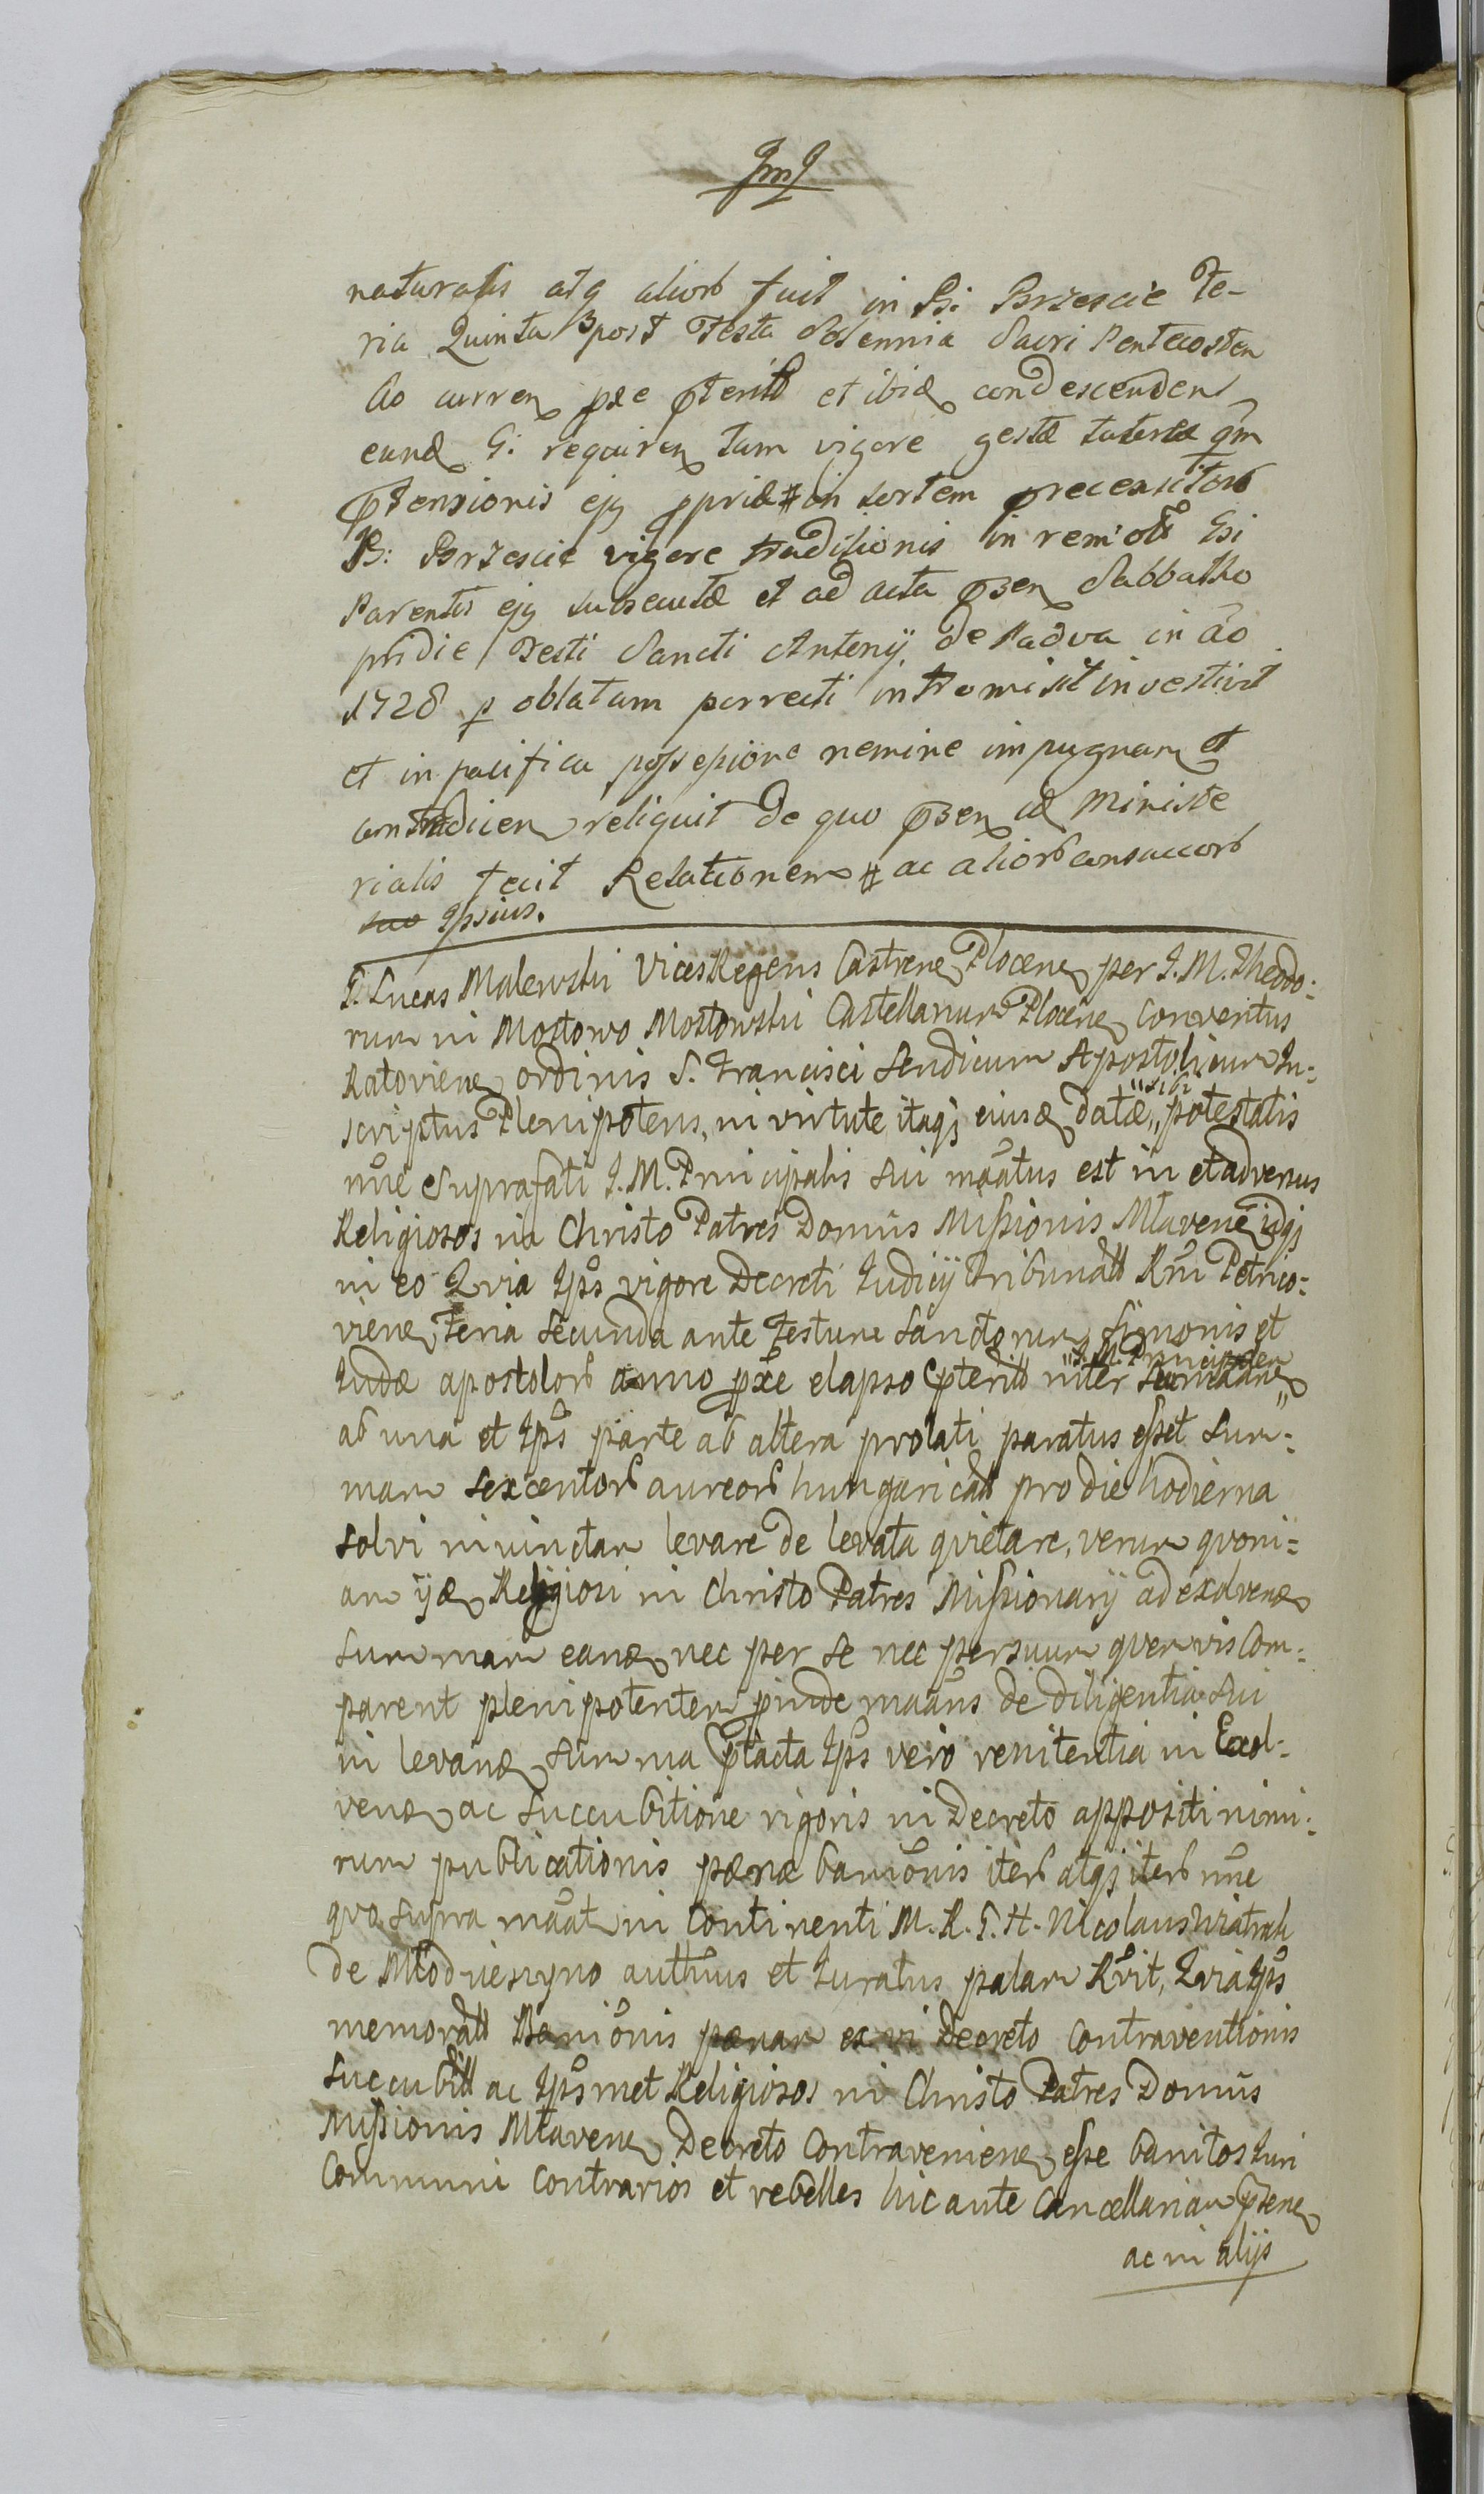 naturalis atq aliorb fuit in B: Brzescie Fe-
ria Quinta post Festa Solennia Sacri Pentecosten
Ao curren pxe pterito et ibid condescenden
eund G: requiren tam vigore gestæ tutelæ qm
ptensionis ejg ppriæ # in sortem precensitorb
B: Brzescie vigore traditionis in rem Gsi
Parentis ejg subsecutæ et ad acta psen Sabbatho
pridie Festi Sancti Antonij de Padva in ao
1728 p oblatam porrecti intromisit investivit
et in pacifica possessione nemine impugnan et
contradicen reliquit De quo psen id Ministe
rialis fecit Relationem # ac aliorb consuccorb
Ipsius.
G. Lucas Malewski Vices Regens Castren Plocen per I. M. Theodo:
rum in Mostowo Mostowski Castellanum Plocen Conventus
Ratovien ordinis S. Francisci Sendicum Apostolicum In:
scriptus Plenipotens, in virtute itaqj eiusd datæ "sibi" potestatis
nne Suprafati I. M. Principalis sui maatus est in et adversus
Religiosos in Christo Patres Domus Missionis Mlaven idqj
in eo Qvia Ips vigore Decreti Iudicij Tribunalis Rni Petrico:
vien Feria Secunda ante Festum Sanctorum Simonis et
Iudæ apostolorb anno pxe elapso pterito inter "I. M. Principalem"
ab una et Ips parte ab altera prolati paratus esset Sum:
mam Sexcentorb aureorb hungaricall pro die hodierna
solvi invinctam levare de levata quietare, verum qvoni:
am ijd Religiosi in Christo Patres Missionarij ad exolvend
Summam eand nec per se nec per suum quemvis Com:
parent plenipotentem pinde maans de diligentia sui
in levand Summa ptacta Ips vero renitentia in Exol:
vend ac Succubitione rigoris in Decreto appositi nimi:
rum publicationis pænæ banionis iterb atqj iterb nne
quo supra maat in Continenti M. R. G. H. Nicolaus Wiatrak
de Mlodviesyno authus et Iuratus palam Rvit, Qvia Ips
memorall Banionis pænam ex vi Decreto Contraventionis
Succubill ac Ipsmet Religiosos in Christo Patres Domus
Missionis Mlaven Decreto Contravenien esse banitos Iuri
Communi Contrarios et rebelles hic ante Cancellariam psen
ac in alijs